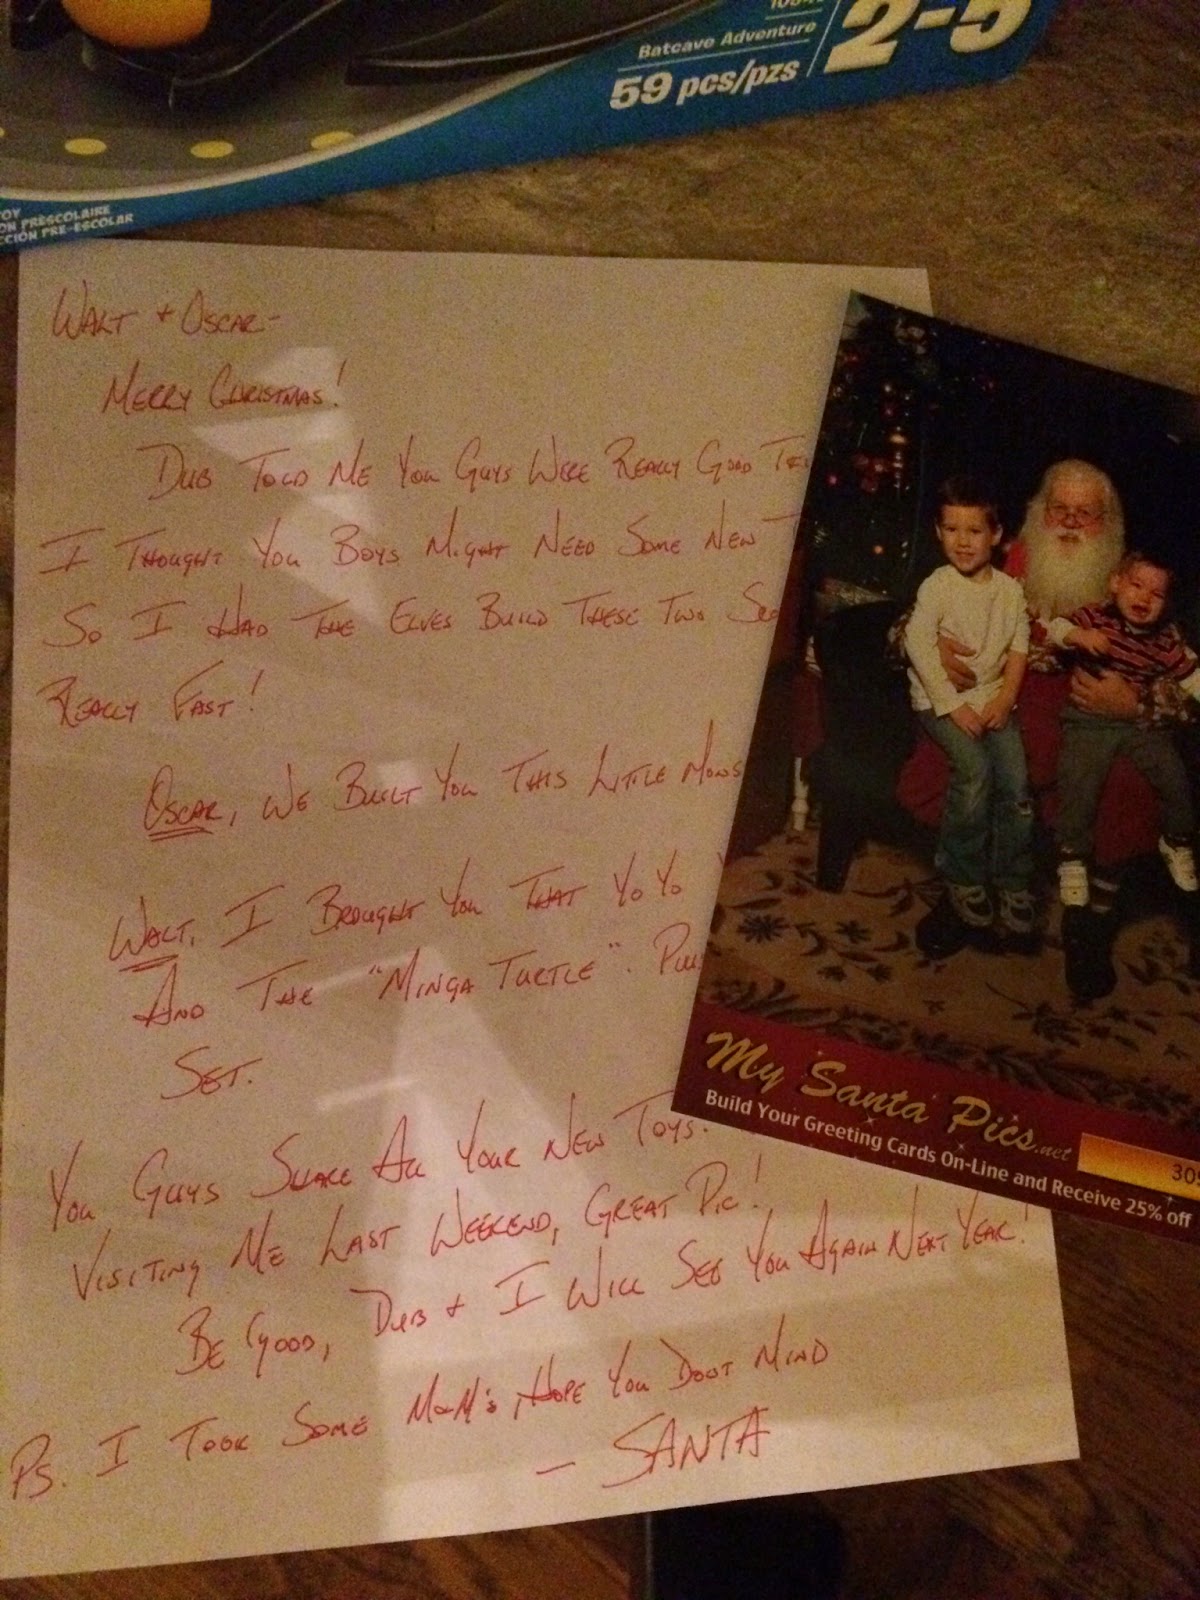 Batcave Adventure
59 pcs/pzs
2-5
PRÉSCOLAIRE
PRE-ESCOLAR
WALT + OSCAR-
MERRY CHRISTMAS!
DUB TOLD ME YOU GUYS WERE REALLY GOOD
I THOUGHT YOU BOYS MIGHT NEED SOME NEW
SO I HAD THE ELVES BUILD THESE TWO
REALLY FAST!
OSCAR, WE BUILT YOU THIS LITTLE
WALT, I BROUGHT YOU THAT YO YO
AND THE "MINGA TURTLE".
SET.
YOU GUYS SHARE ALL YOUR NEW TOYS.
VISITING ME LAST WEEKEND, GREAT PIC!
BE GOOD, DUB + I WILL SEE YOU AGAIN NEXT YEAR!
PS. I TOOK SOME M&M'S, HOPE YOU DONT MIND
— SANTA
My Santa Pics.net
Build Your Greeting Cards On-Line and Receive 25% off